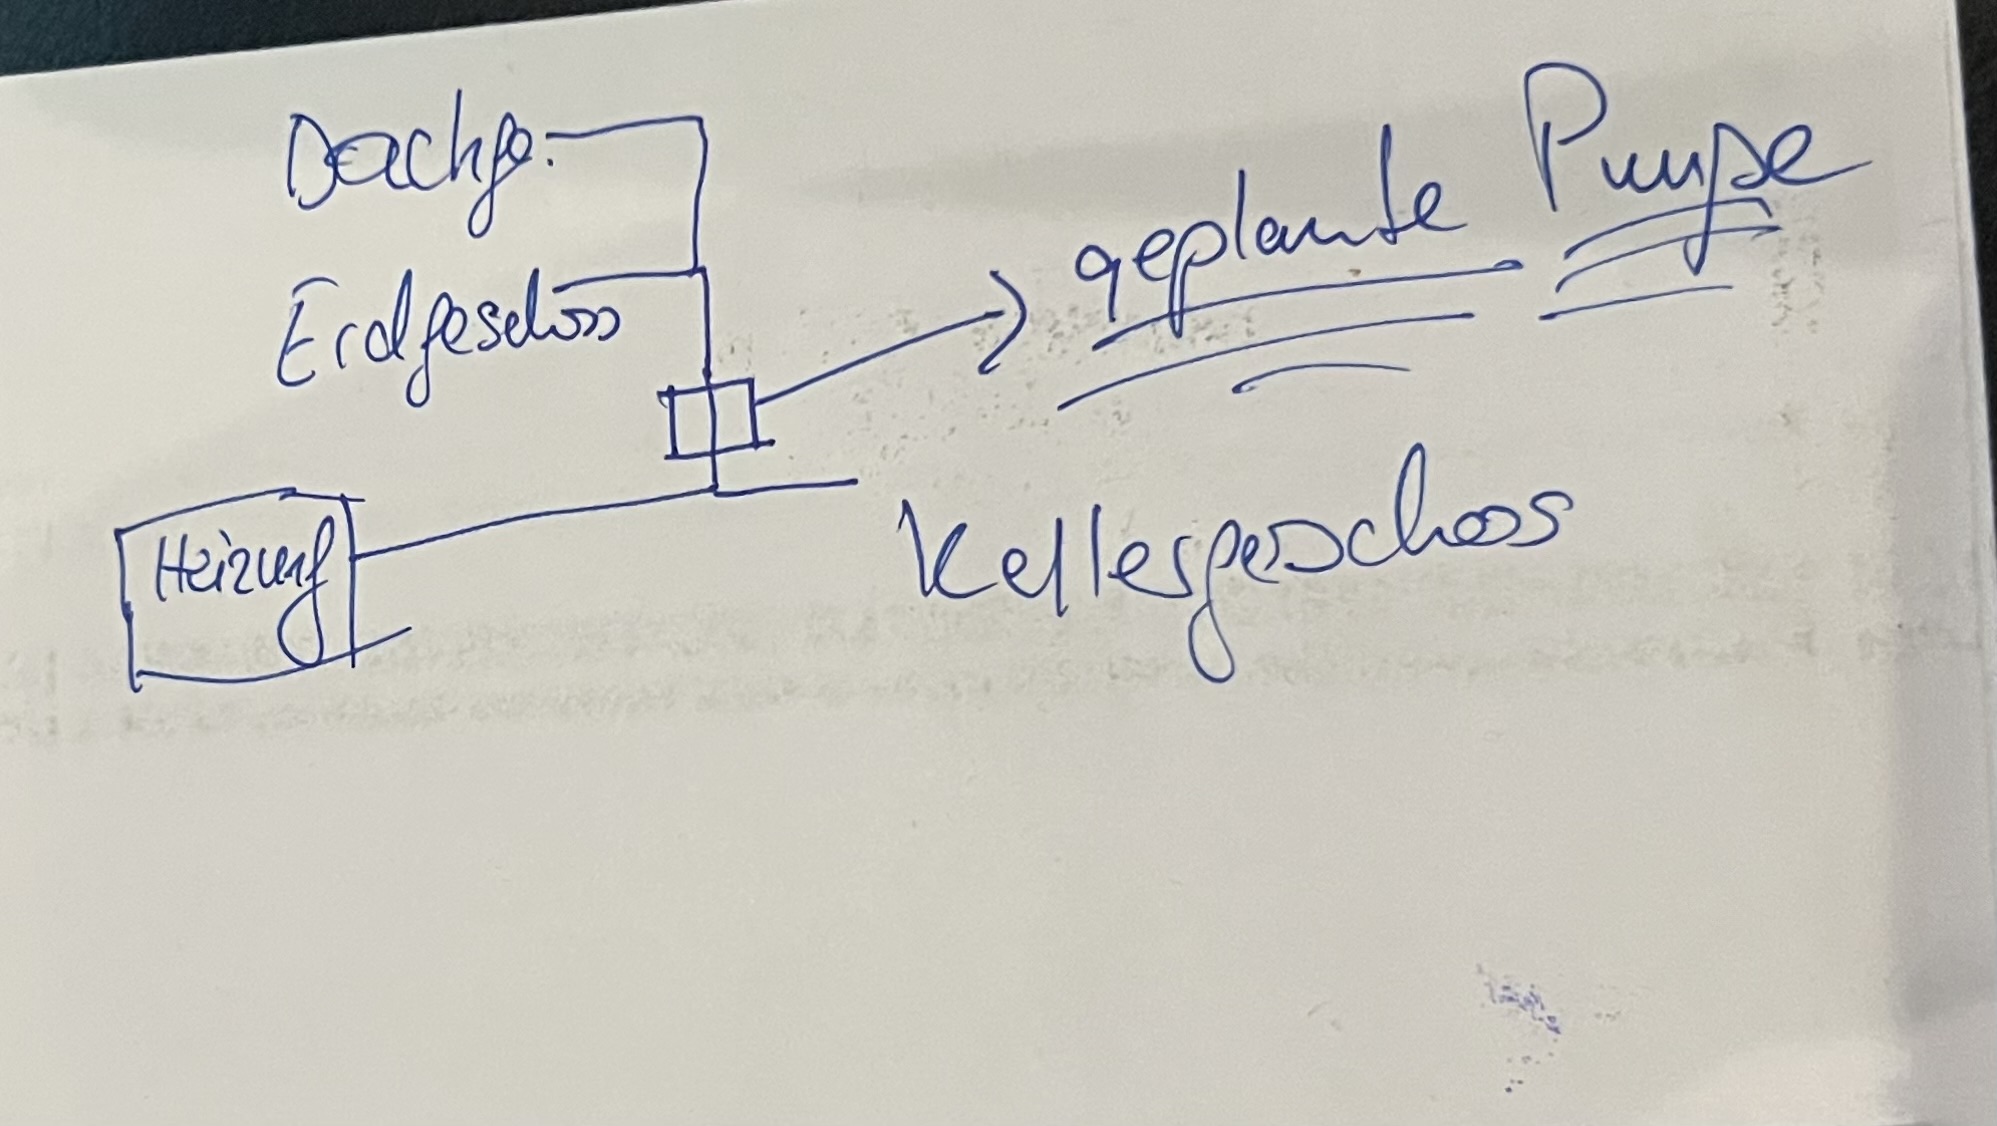 Dachge.
geplante Pumpe
Erdgeschoss
Heizung
Kellergeschoss